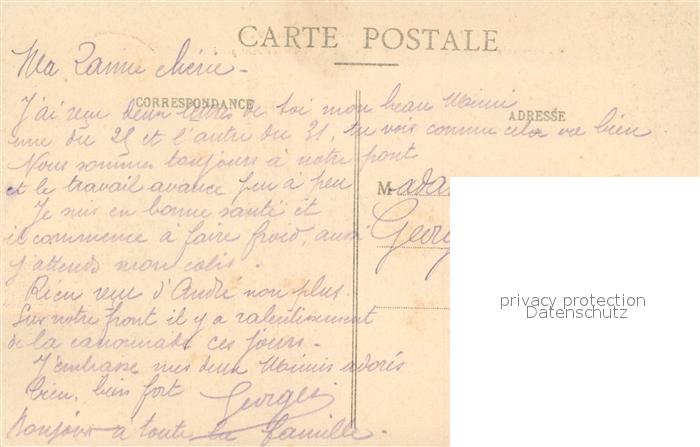 CARTE POSTALE
Ma Zanne chérie -
CORRESPONDANCE
ADRESSE
J'ai reçu deux lettres de toi mon beau Mimi
une du 29 et l'autre du 31, tu vois comme cela va bien
Nous sommes toujours à notre pont
et le travail avance peu à peu
Je suis en bonne santé et
il commence à faire froid, aussi
j'attends mon colis.
Rien reçu d'André non plus.
Sur notre front il y a ralentissement
de la canonnade ces jours -
J'embrasse mes deux Mimis adorés
bien, bien fort Georges
Bonjour à toute la famille.
Mada
Georg
privacy protection
Datenschutz